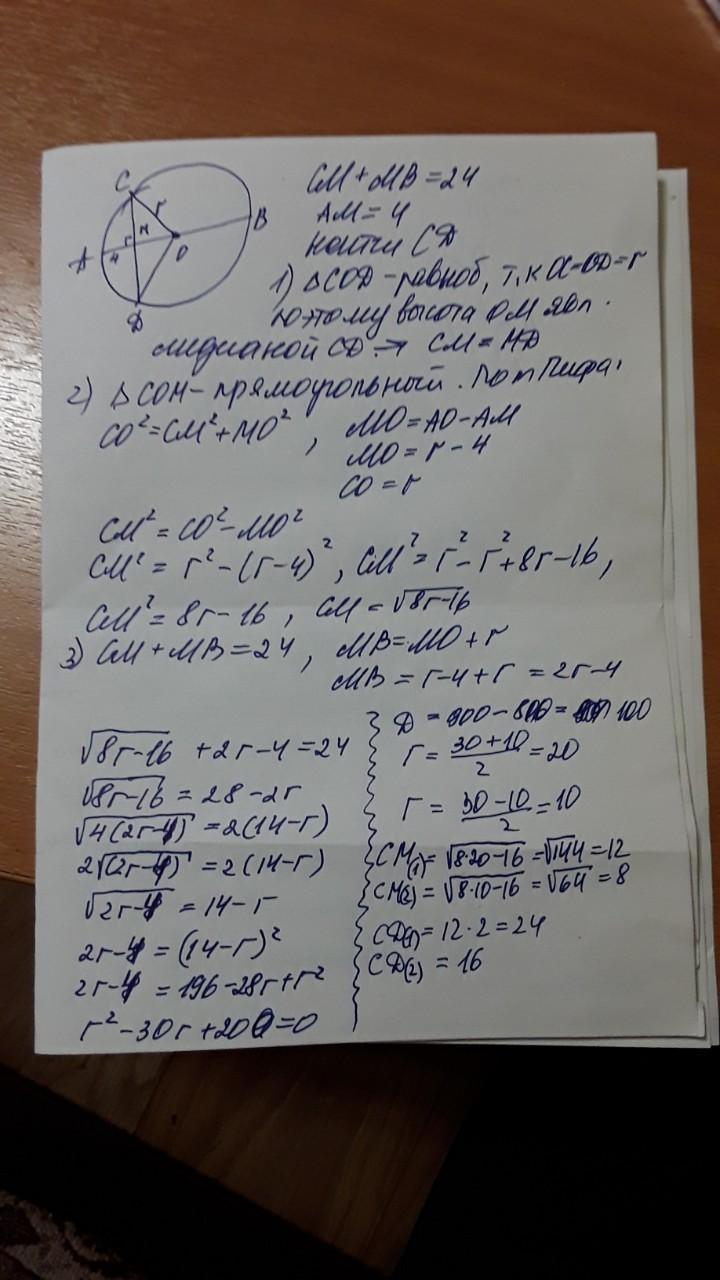 C
r
M
B
A
4
O
D
CM + MB = 24
AM = 4
найти CD
1) △COD – равноб, т.к OC=OD=r
поэтому высота OM явл.
медианой CD → CM = MD
2) △COM – прямоугольный. По т Пифа.
CO² = CM² + MO² , MO = AO – AM
MO = r – 4
CO = r
CM² = CO² – MO²
CM² = r² – (r–4)² , CM² = r² – r² + 8r – 16,
CM² = 8r – 16 , CM = √8r–16
3) CM + MB = 24 , MB = MO + r
MB = r–4+r = 2r–4
√8r–16 + 2r – 4 = 24
√8r–16 = 28 – 2r
√4(2r–4) = 2(14–r)
2√(2r–4) = 2(14–r)
√2r–4 = 14 – r
2r–4 = (14–r)²
2r–4 = 196 – 28r + r²
r² – 30r + 200 = 0
D = 900 – 800 = 100
r = 30+10/2 = 20
r = 30–10/2 = 10
CM(1) = √8·20–16 = √144 = 12
CM(2) = √8·10–16 = √64 = 8
CD(1) = 12·2 = 24
CD(2) = 16